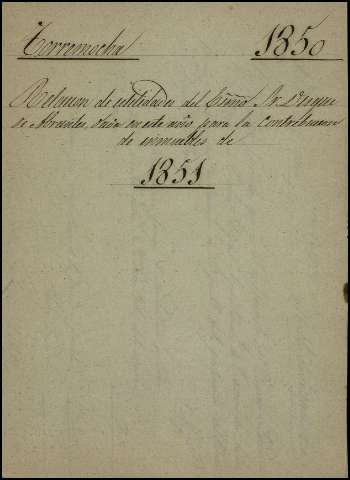 Torremocha 1850
Relacion de utilidades del Exmo Sr. Duque
de Abrantes, dada en este año para la contribucion
de inmuebles de
1851